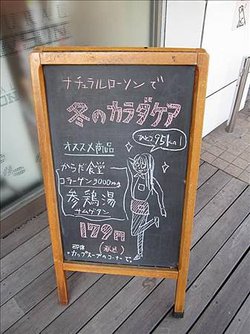 ナチュラルローソンで
冬のカラダケア
オススメ商品
からだ食堂
コラーゲン3000mg
参鶏湯
サムゲタン
179円
(税込)
カップスープのコーナーで